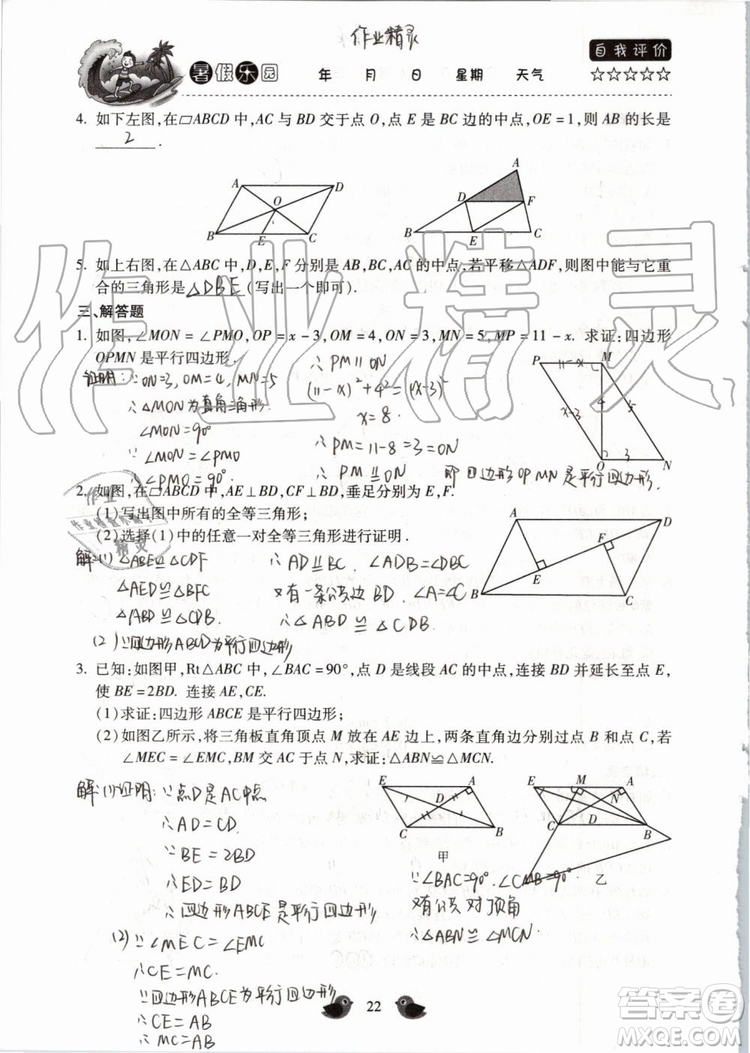 作业精灵
暑假乐园 年 月 日 星期 天气 自我评价
☆☆☆☆☆
4. 如下左图,在▱ABCD中,AC与BD交于点O,点E是BC边的中点,OE=1,则AB的长是
2 .
A D O B E C
A D F B E C
5. 如上右图,在△ABC中,D,E,F分别是AB,BC,AC的中点,若平移△ADF,则图中能与它重
合的三角形是 △DBE (写出一个即可).
三、解答题
1. 如图,∠MON=∠PMO,OP=x-3,OM=4,ON=3,MN=5,MP=11-x. 求证:四边形
OPMN是平行四边形.
证明:∵ON=3,OM=4,MN=5
∴△MON为直角三角形
∴∠MON=90°
∵∠MON=∠PMO
∴∠PMO=90°
∴PM∥ON
(11-x)²+4²=(x-3)²
x=8.
∴PM=11-8=3=ON
∴PM≝ON 即四边形OPMN是平行四边形.
P 11-x M
x-3 4 5
O 3 N
2. 如图,在▱ABCD中,AE⊥BD,CF⊥BD,垂足分别为E,F.
(1)写出图中所有的全等三角形;
(2)选择(1)中的任意一对全等三角形进行证明.
解:(1)△ABE≌△CDF
△AED≌△BFC
△ABD≌△CDB
(2)∵四边形ABCD为平行四边形
∴AD≝BC. ∠ADB=∠DBC
又有一条公边BD. ∠A=∠C
∴△ABD≌△CDB.
A D F E B C
3. 已知:如图甲,Rt△ABC中,∠BAC=90°,点D是线段AC的中点,连接BD并延长至点E,
使BE=2BD. 连接AE,CE.
(1)求证:四边形ABCE是平行四边形;
(2)如图乙所示,将三角板直角顶点M放在AE边上,两条直角边分别过点B和点C,若
∠MEC=∠EMC,BM交AC于点N,求证:△ABN≌△MCN.
解:(1)证明:∵点D是AC中点
∴AD=CD.
∵BE=2BD
∴ED=BD
∴四边形ABCE是平行四边形
(2)∵∠MEC=∠EMC
∴CE=MC.
∵四边形ABCE为平行四边形
∴CE=AB
∴MC=AB
E A D C B
甲
E M A N C D B
乙
∵∠BAC=90°, ∠CMB=90°
又有公共对顶角
∴△ABN≌△MCN.
22
作业精灵
答案圈
MXQE.COM